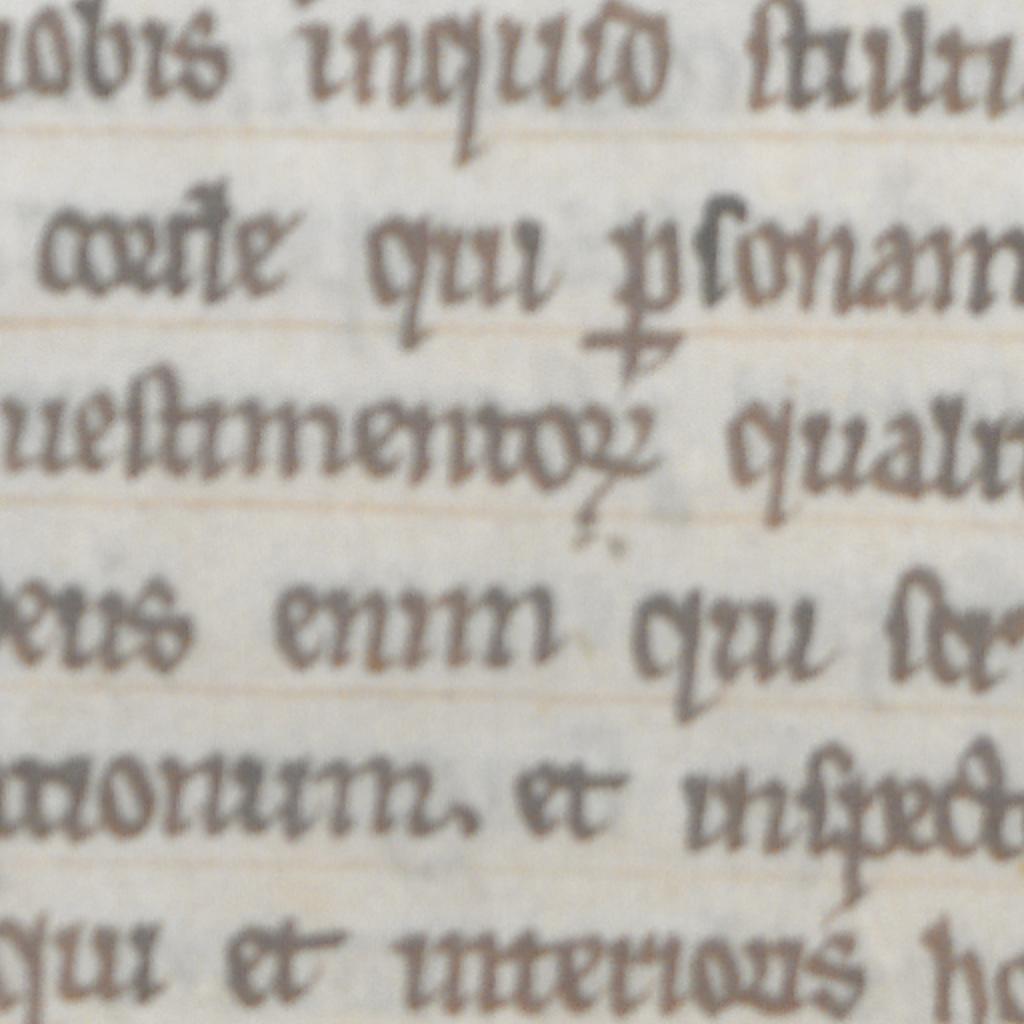 uobis inquid ſtulti
qui ꝑſonam
ueſtimentoꝝ qualit
eus enim qui ſcr
tionum, et inſpect
qui et interioris ho